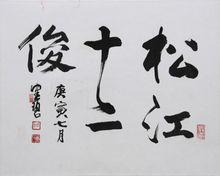 松江
十二
俊
庚寅七月